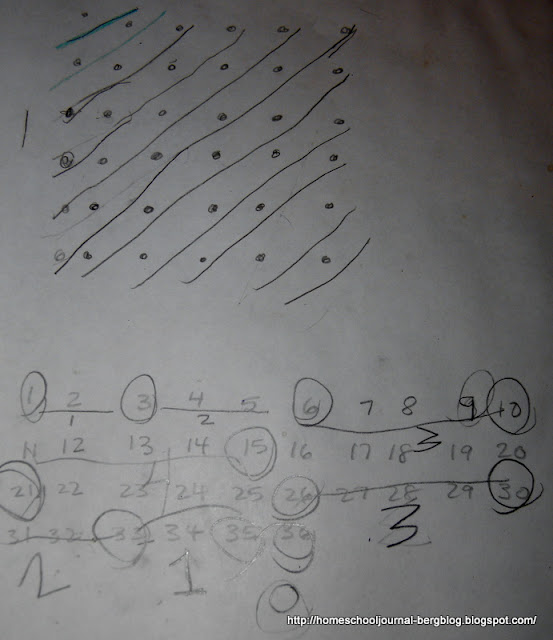 1 2 3 4 5 6 7 8 9 10
1 2 3
11 12 13 14 15 16 17 18 19 20
21 22 23 24 25 26 27 28 29 30
31 32 33 34 35 36
2 1 3
0
http://homeschooljournal-bergblog.blogspot.com/